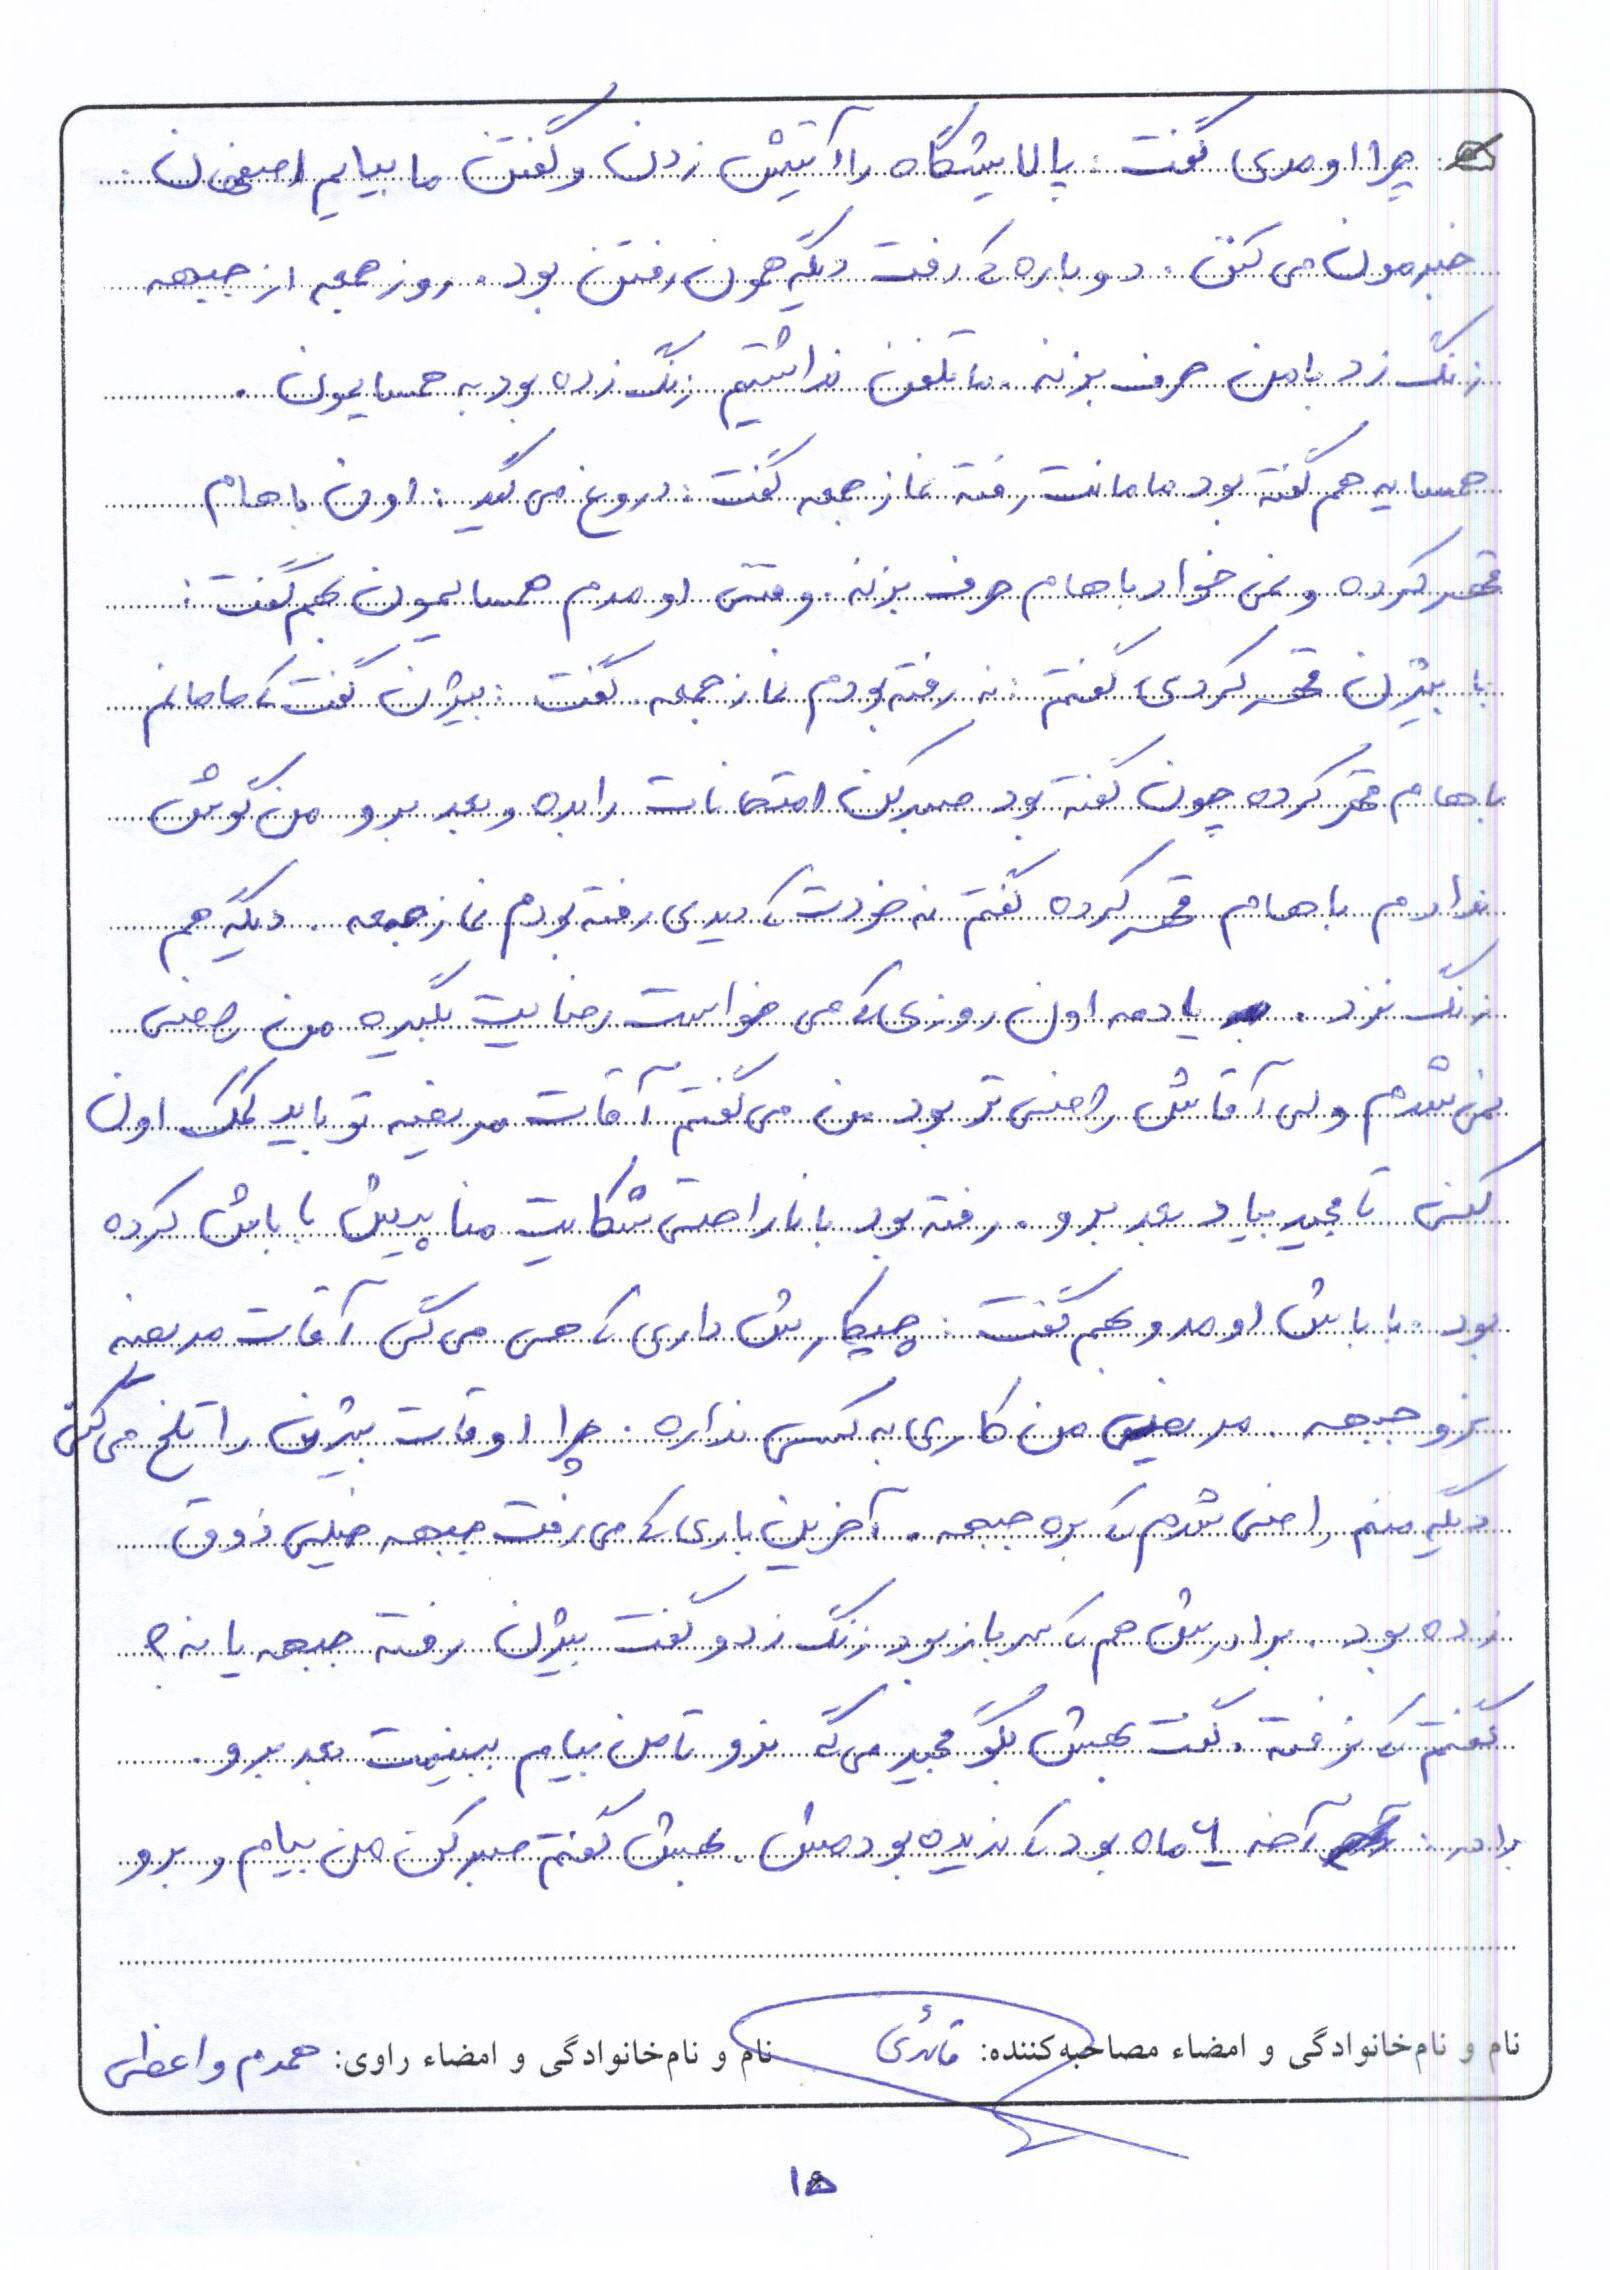 چرا اومدی گفت: پالایشگاه را آتیش زدن و گفتن ما بیایم اصفهان.
خبرمون می کنن. دوباره که رفت دیگه همون رفتن بود. روز جمعه از جبهه
زنگ زد با من حرف بزنه. ما تلفن نداشتیم زنگ زده بود به همسایمون.
همسایه هم گفته بود مامانت رفته نماز جمعه گفت: دروغ می گید: اون باهام
قهر کرده و نمی خواد باهام حرف بزنه. وقتی اومدم همسایمون بهم گفت:
با بیژن قهر کردی گفتم: نه رفته بودم نماز جمعه. گفت: بیژن گفت که مامانم
باهام قهر کرده چون گفته بود صبر کن امتحانات را بده و بعد برو من گوش
ندادم باهام قهر کرده گفتم نه خودت که دیدی رفته بودم نماز جمعه. دیگه هم
زنگ نزد. یادمه اون روزی که می خواست رضایت بگیره من راضی
نمی شدم ولی آقاش راضی تر بود من می گفتم آقات مریضه تو باید کمک اون
کنی تا مجید بیاد بعد برو. رفته بود با ناراحتی شکایت منا پیش باباش کرده
بود. باباش اومد و بهم گفت: چیکارش داری که هی می گی آقات مریضه
نرو جبهه. مریضی من کاری به کسی نداره. چرا اوقات بیژن را تلخ می کنی
دیگه منم راضی شدم که بره جبهه. آخرین باری که می رفت جبهه خیلی ذوق
زده بود. برادرش هم که سرباز بود زنگ زد و گفت بیژن رفته جبهه یا نه؟
گفتم که نرفته. گفت بهش بگو مجید می گه نرو تا من بیام ببینمت بعد برو.
برادر: آخه ۶ ماه بود که ندیده بودمش. بهش گفتم صبر کن من بیام و برو
نام و نام‌خانوادگی و امضاء مصاحبه‌کننده: قائدی نام و نام‌خانوادگی و امضاء راوی: همدم واعظی
۱۵